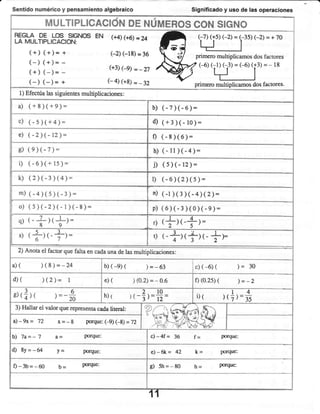 Sentido numérico y pensamiento algebraico    Significado y uso de las operaciones
MULTIPLICACIÓN DE NÚMEROS CON SIGNO
REGLA DE LOS SIGNOS EN LA MULTIPLICACION:
( + ) ( + ) = +
( – ) ( + ) = –
( + ) ( – ) = –
( – ) ( – ) = +
(+4) (+6) = 24
(-2) (-18) = 36
(+3) (-9) = – 27
(- 4) (+8) = – 32
(-7) (+5) (-2) = (-35) (-2) = + 70
primero multiplicamos dos factores
(-6) (-1) (-3) = (-6) (+3) = - 18
primero multiplicamos dos factores.
1) Efectúa las siguientes multiplicaciones:
a) ( + 8 ) ( + 9 ) =    b) ( - 7 ) ( - 6 ) =
c) ( - 5 ) ( + 4 ) =    d) ( + 3 ) ( - 10 ) =
e) ( - 2 ) ( - 12 ) =    f) ( - 8 ) ( 6 ) =
g) ( 9 ) ( - 7 ) =    h) ( - 11 ) ( - 4 ) =
i) ( - 6 ) ( + 15 ) =    j) ( 5 ) ( - 12 ) =
k) ( 2 ) ( - 3 ) ( 4 ) =    l) ( - 6 ) ( 2 ) ( 5 ) =
m) ( - 4 ) ( 5 ) ( - 3 ) =    n) ( -1 ) ( 3 ) ( - 4 ) ( 2 ) =
o) ( 5 ) ( - 2 ) ( - 1 ) ( - 8 ) =    p) ( 6 ) ( - 3 ) ( 0 ) ( - 9 ) =
2) Anota el factor que falta en cada una de las multiplicaciones:
a) (   ) ( 8 ) = – 24    b) (-9) (   ) = – 63    c) (-6) (   ) = 30
d) (   ) ( 2 ) = 1    e) (   ) (0.2) = – 0.6    f) (0.25) (   ) = – 2
3) Hallar el valor que representa cada literal:
a) – 9x = 72    x = – 8    porque: (-9) (-8) = 72
b) 7a = – 7    a =    porque:    c) – 4f = 36    f =    porque:
d) 8y = – 64    y =    porque:    e) – 6k = 42    k =    porque:
f) – 3b = – 60    b =    porque:    g) 5h = – 80    h =    porque:
11